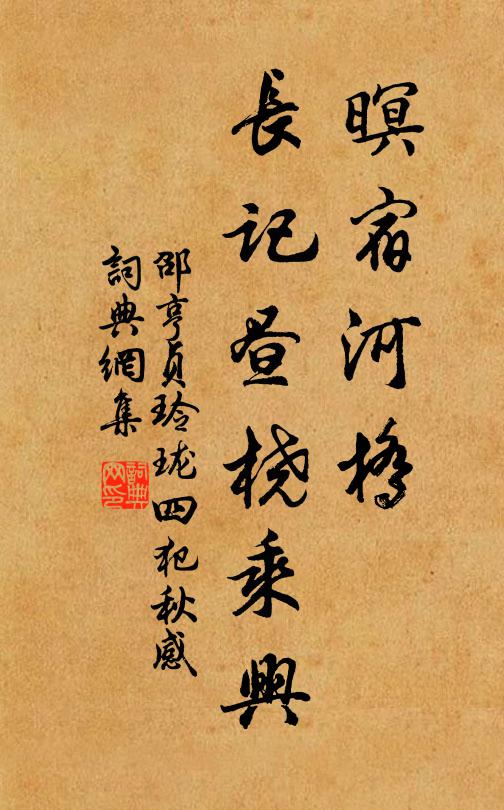 暝宿河橋
長記畫橈乘興
邵亨貞玲瓏四犯秋感
詞典網集
詞典
网印